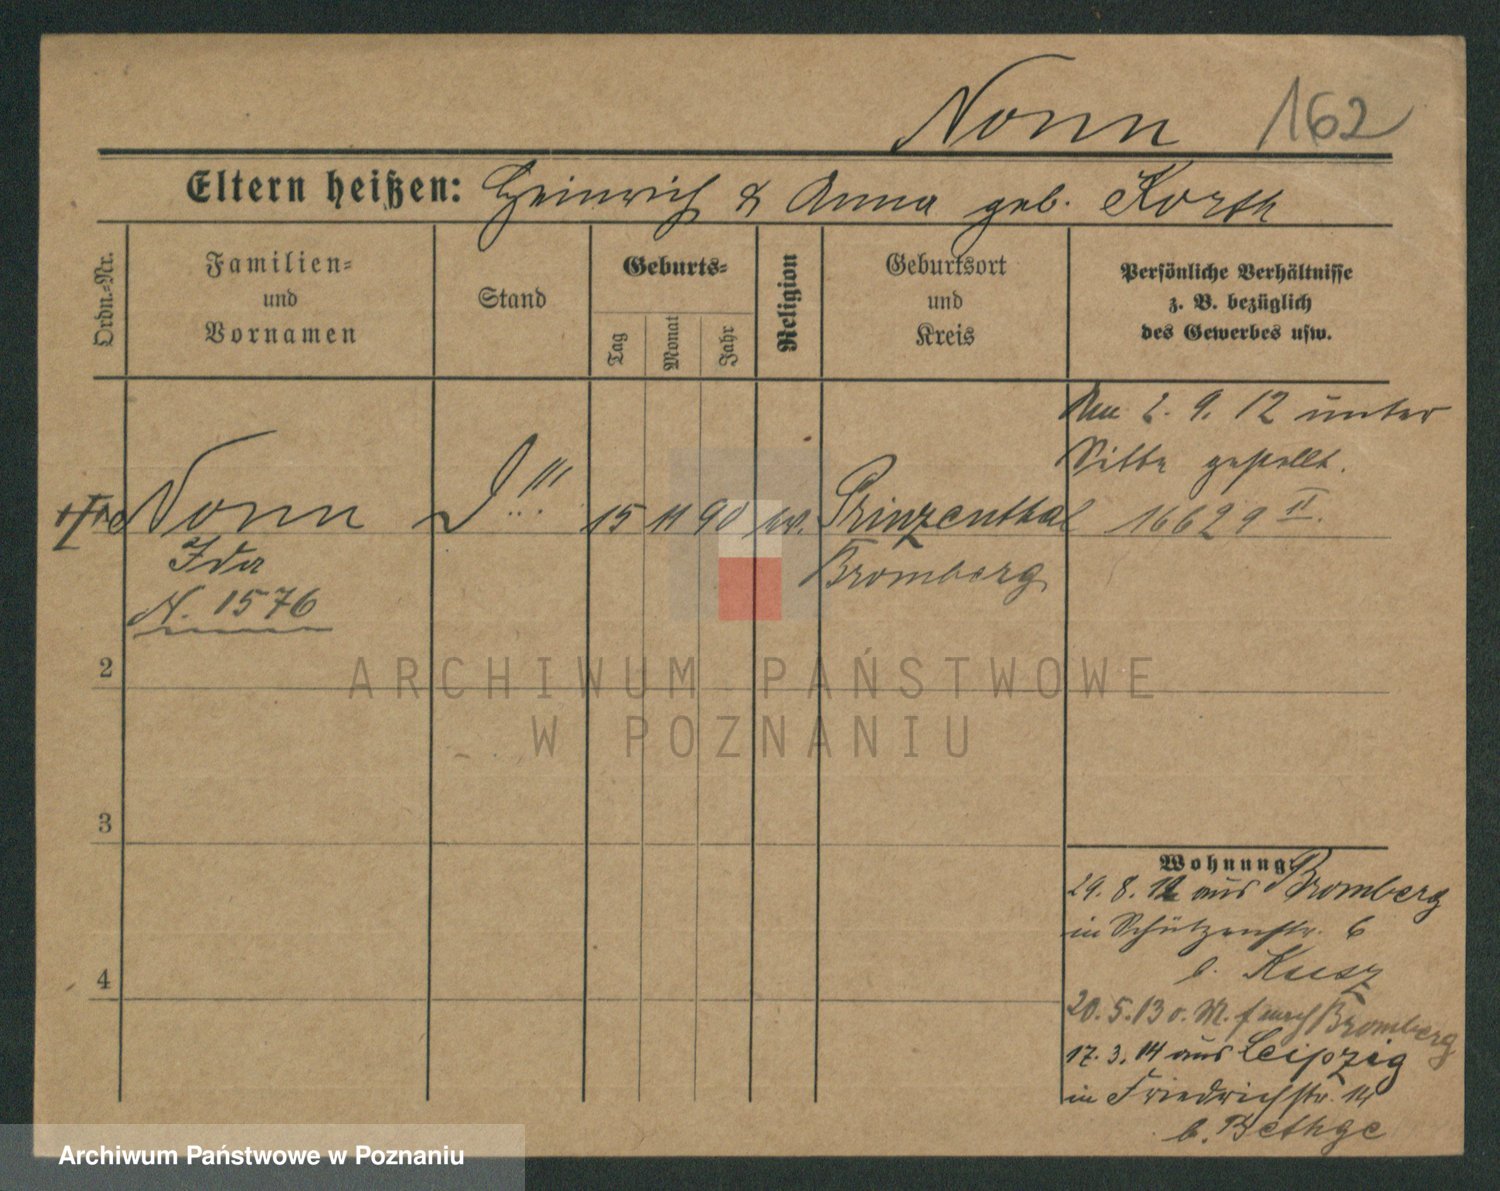 Nonn 162
Eltern heißen: Heinrich & Anna geb. Korth
Ordn.-Nr.
Familien-
und
Vornamen
Stand
Geburts-
Tag
Monat
Jahr
Religion
Geburtsort
und
Kreis
Persönliche Verhältnisse
z. B. bezüglich
des Gewerbes usw.
2. 9. 12 unter
Sitte gestellt.
Nonn 15 11 90 ev. Prinzenthal 16629 II.
Ida Bromberg
N. 1576
2
3
4
Wohnung:
29. 8. 12 aus Bromberg
in Schützenstr. 6
b. Kusz
20. 5. 13 o. M. nach Bromberg
17. 3. 14 aus Leipzig
in Friedrichstr. 14
b. Bethge
ARCHIWUM PAŃSTWOWE
W POZNANIU
Archiwum Państwowe w Poznaniu